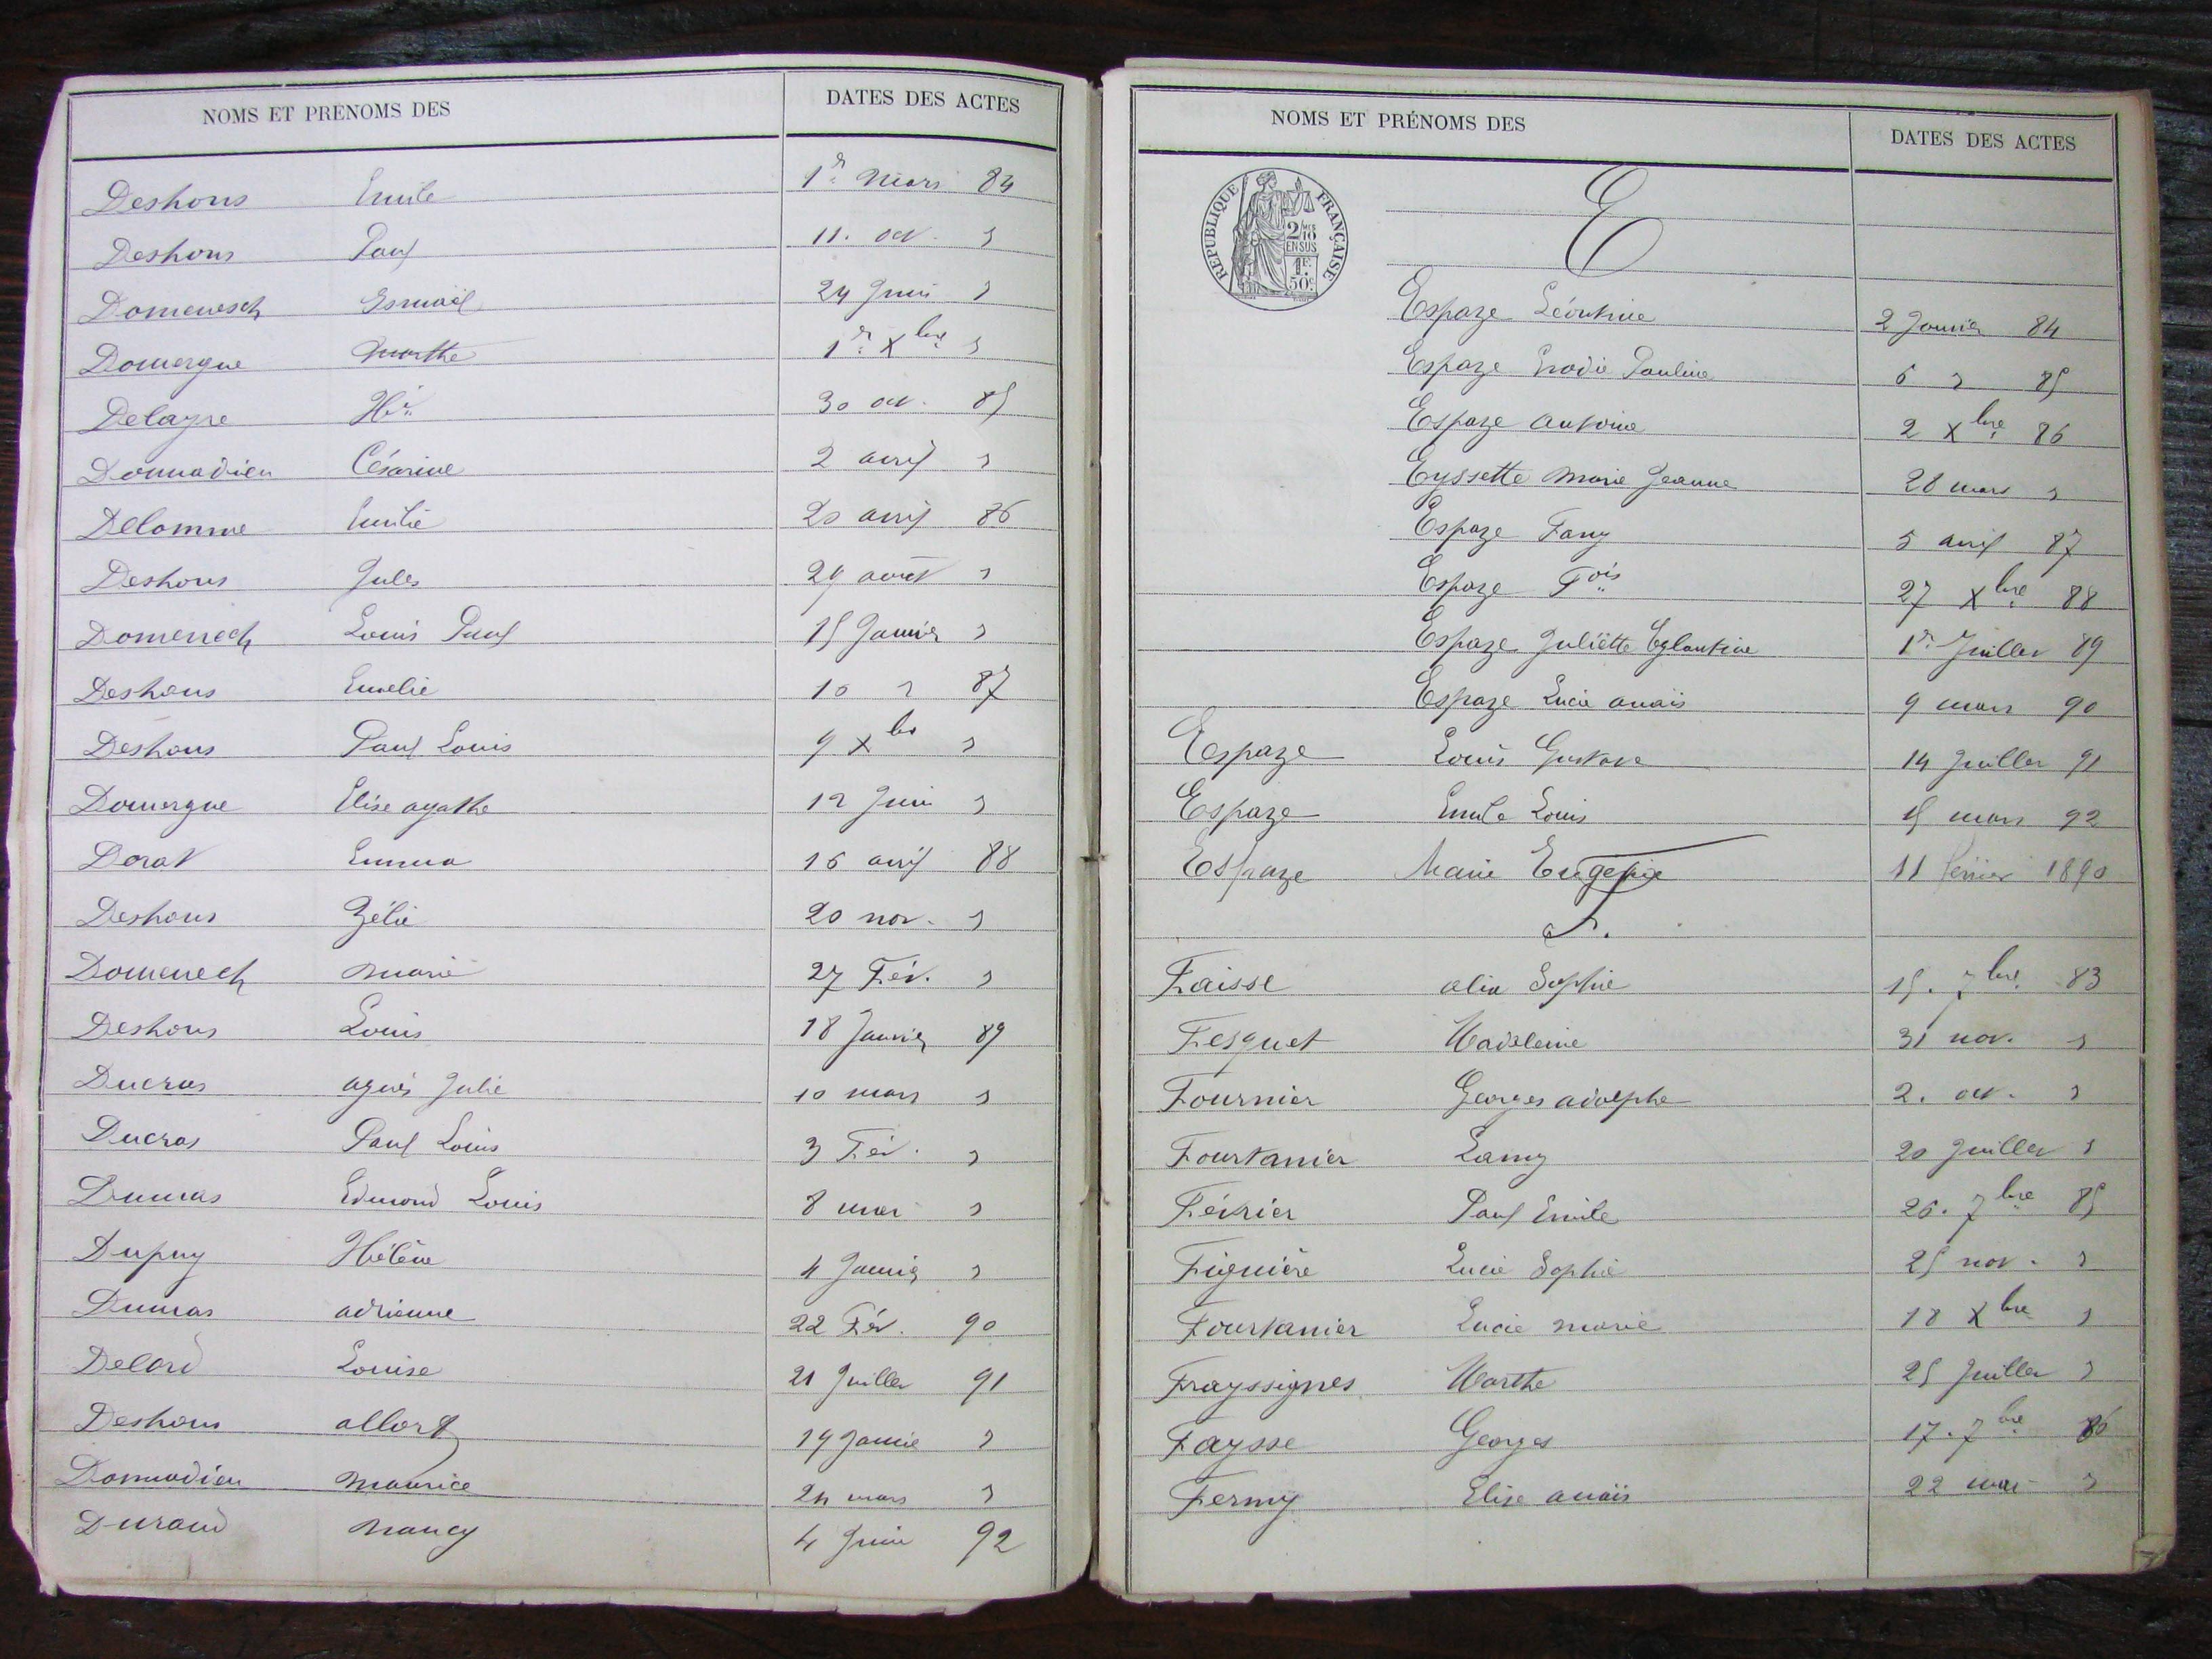 NOMS ET PRÉNOMS DES DATES DES ACTES
Deshons Emile 1er Mars 84
Deshons Paul 11. oct. "
Domenesch Ismaël 24 Juin "
Domergue Marthe 1er Xbre "
Delayre Hri 30 oct. 85
Donnadieu Césarine 2 avril "
Delomme Emilie 20 avril 86
Deshons Jules 29 août "
Domenech Louis Paul 15 Janvier "
Deshons Emelie 10 " 87
Deshons Paul Louis 9 Xbre "
Domergue Elise agathe 12 Juin "
Dorat Emma 16 avril 88
Deshons Zélie 20 nov. "
Domenech Marie 27 Fév. "
Deshons Louis 18 Janvier 89
Ducros agnès Julie 10 mars "
Ducros Paul Louis 3 Fév. "
Dumas Edmond Louis 8 mai "
Dupuy Hélène 4 Janvier "
Dumas adrienne 22 Fév. 90
Delord Louise 21 Juillet 91
Deshons albert 19 Janvie "
Donnadieu Maurice 24 mars "
Durand Nancy 4 Juin 92
NOMS ET PRÉNOMS DES DATES DES ACTES
REPUBLIQUE FRANÇAISE
2/10 EN SUS
1F. 50c
E
Espaze Léontine 2 Janvier 84
Espaze Elodie Pauline 6 " 85
Espaze Antoine 2 Xbre 86
Eyssette Marie Jeanne 28 mars "
Espaze Fany 5 avril 87
Espaze Fois 27 Xbre 88
Espaze Juliëtte Eglantine 1er Juillet 89
Espaze Lucie anaïs 9 mars 90
Espaze Louis Gustave 14 Juillet 91
Espaze Emile Louis 15 mars 92
Espaze Marie Eugénie 11 février 1890
F.
Faisse alix Sophie 15. 7bre 83
Fesquet Madeleine 31 nov. "
Fournier Georges adolphe 2. oct. "
Fourtanier Lamy 20 Juillet "
Février Paul Emile 26. 7bre 85
Figuière Lucie Sophie 25 nov. "
Fourtanier Lucie Marie 18 Xbre "
Frayssignes Marthe 25 Juillet "
Faysse Georges 17. 7bre 86
Fermy Elise anaïs 22 mai "